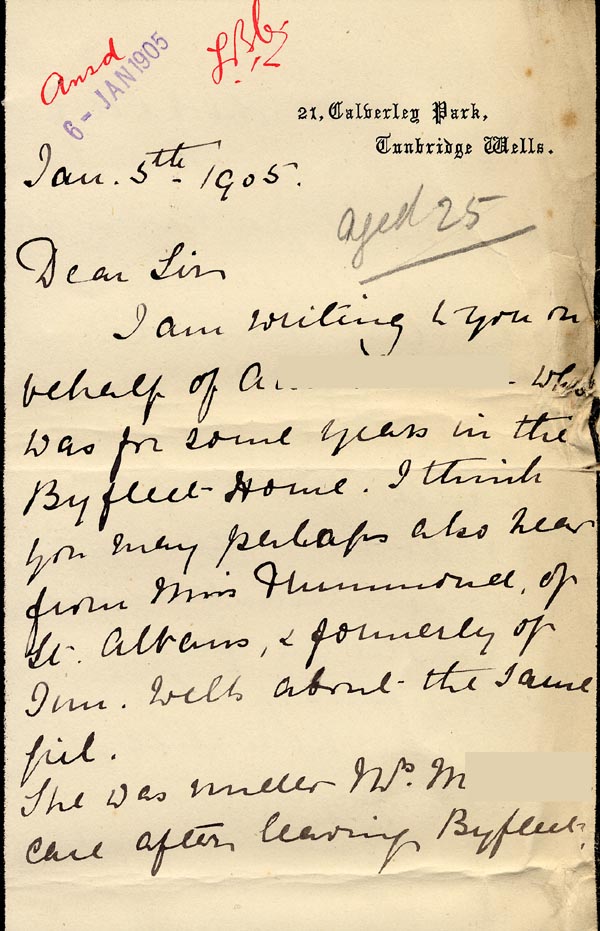 Ansd
6 - JAN 1905
21, Calverley Park,
Tunbridge Wells.
Jan. 5th - 1905.
aged 25
Dear Sir
I am writing to you on
behalf of A who
was for some years in the
Byfleet Home. I think
you may perhaps also hear
from Miss Hummond, of
St. Albans, & formerly of
Tun. Wells about the same
girl.
She was under Mrs. M
care after leaving Byfleet.